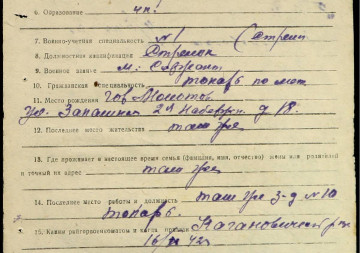 6. Образование 4 кл.
7. Военно-учетная специальность №1 (Стрелк
8. Должностная квалификация Стрелок
9. Военное звание М. Сержант
10. Гражданская специальность токарь по мет
11. Место рождения гор Молотов
ул. Запашная 2я Набережн. д 18.
12. Последнее место жительства там же
13. Где проживает в настоящее время семья (фамилия, имя, отчество) жены или родителей
и точный их адрес там же
14. Последнее место работы и должность там же з-д №10
токарь.
15. Каким райгорвоенкоматом и когда призван Кагановичский рвк
16/ 42г.